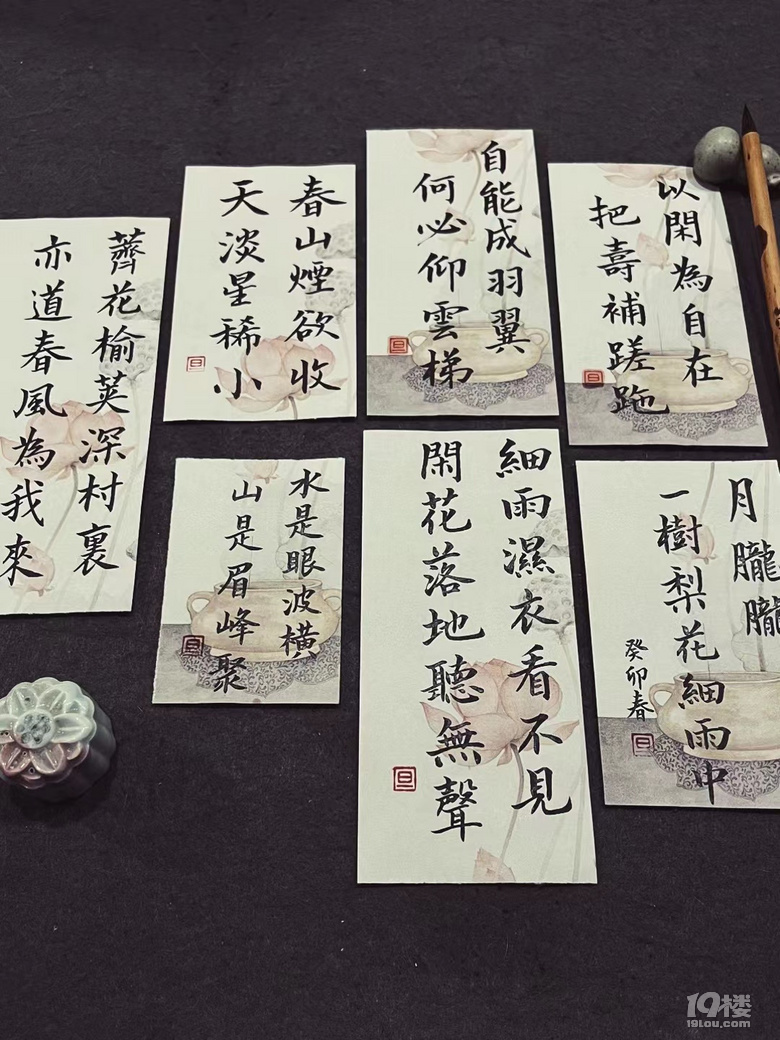 薺花榆莢深村裏
亦道春風為我來
春山煙欲收
天淡星稀小
自能成羽翼
何必仰雲梯
以閑為自在
把壽補蹉跎
水是眼波橫
山是眉峰聚
細雨濕衣看不見
閑花落地聽無聲
月朧朧
一樹梨花細雨中
癸卯春
旦
旦
旦
旦
旦
旦
19楼
19lou.com